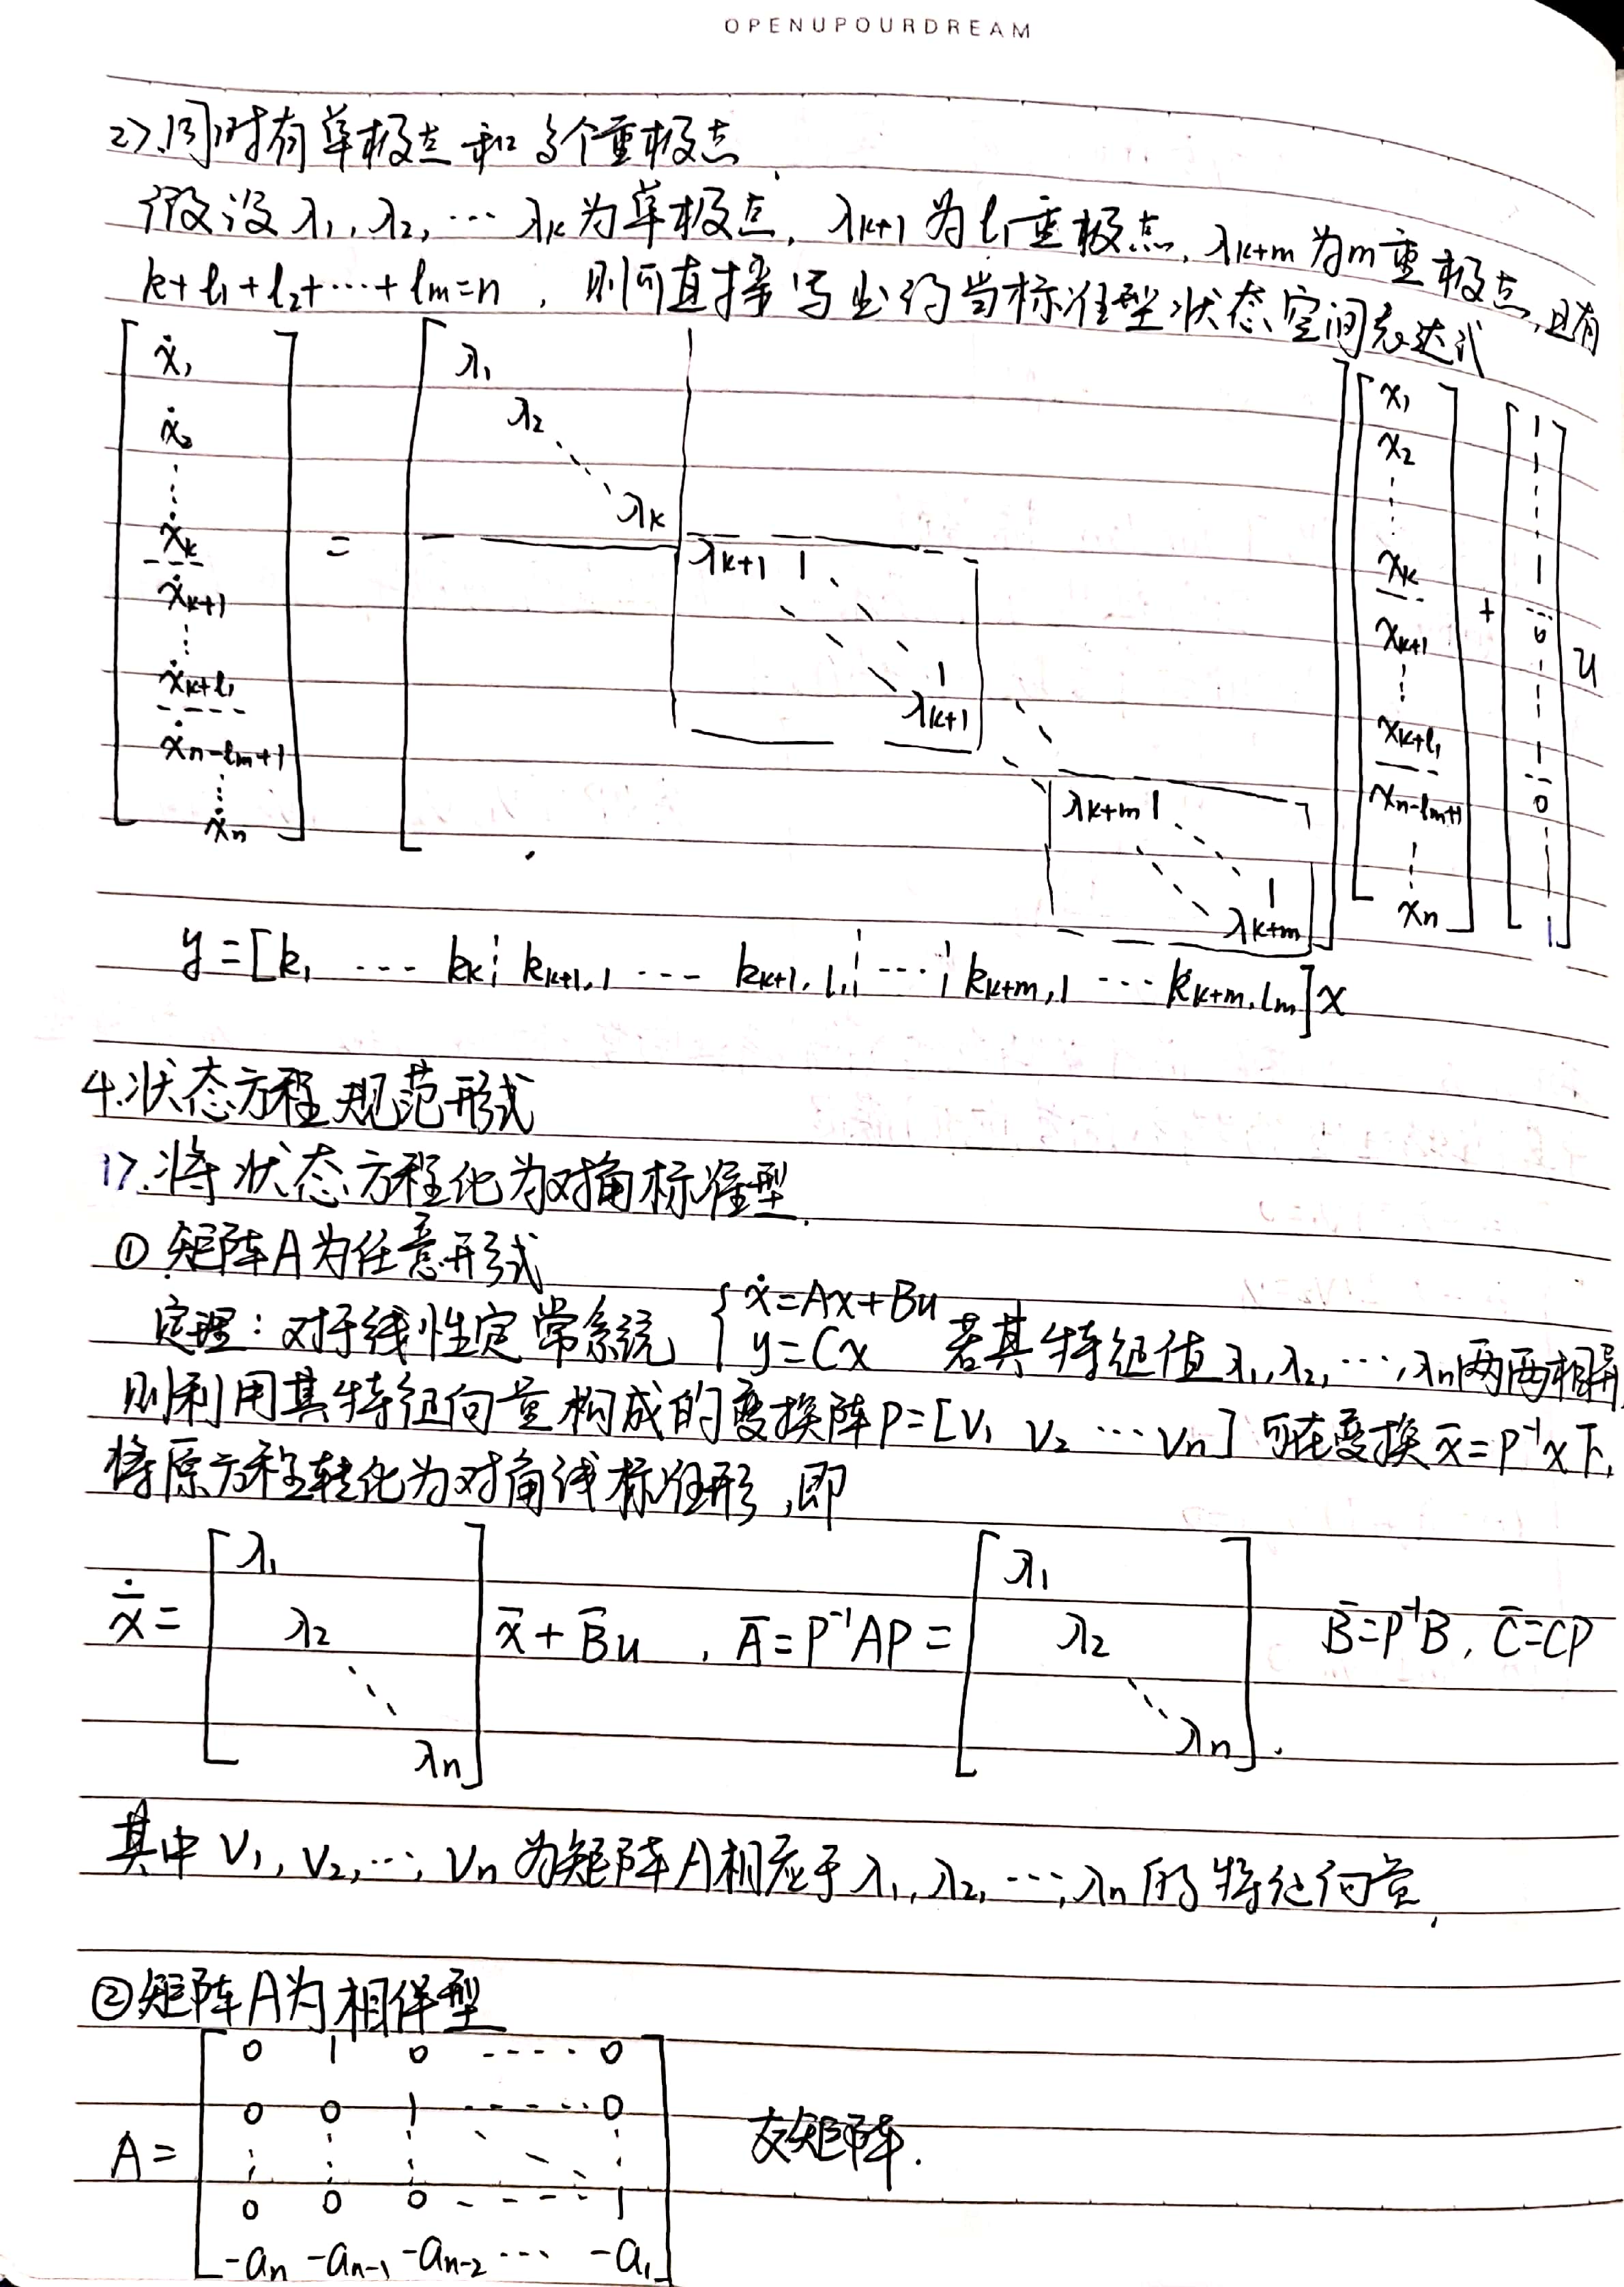 OPENUPOURDREAM
2>.同时有单极点和多个重极点
假设λ₁,λ₂,⋯λk为单极点,λk+1为l₁重极点,λk+m为m重极点,且有
k+l₁+l₂+⋯+lm=n,则可直接写出约当标准型状态空间表达式
[ẋ₁ ẋ₂ ⋮ ẋk ẋk+1 ⋮ ẋk+l₁ ẋn-lm+1 ⋮ ẋn] = [λ₁ λ₂ ⋱ λk λk+1 1 ⋱ 1 λk+1 ⋱ λk+m 1 ⋱ 1 λk+m] [x₁ x₂ ⋮ xk xk+1 ⋮ xk+l₁ xn-lm+1 ⋮ xn] + [1 1 ⋮ 1 0 ⋮ 1 0 ⋮ 1] u
y=[k₁ ⋯ kk ¦ kk+1,1 ⋯ kk+1,l₁ ¦ ⋯ ¦ kk+m,1 ⋯ kk+m,lm]x
4.状态方程规范形式
1>.将状态方程化为对角标准型.
① 矩阵A为任意形式
定理:对于线性定常系统 {ẋ=Ax+Bu y=Cx 若其特征值λ₁,λ₂,⋯,λn两两相异,
则利用其特征向量构成的变换阵P=[V₁ V₂ ⋯ Vn]可在变换x̄=P⁻¹x下,
将原方程转化为对角线标准形,即
ẋ̄=[λ₁ λ₂ ⋱ λn]x̄+B̄u , Ā=P⁻¹AP=[λ₁ λ₂ ⋱ λn]. B̄=P⁻¹B, C̄=CP
其中V₁,V₂,⋯,Vn为矩阵A相应于λ₁,λ₂,⋯,λn的特征向量.
②矩阵A为相伴型
A=[0 1 0 ⋯ 0
0 0 1 ⋯ 0
⋮ ⋮ ⋮ ⋱ ⋮ 友矩阵.
0 0 0 ⋯ 1
-an -an-1 -an-2 ⋯ -a₁]